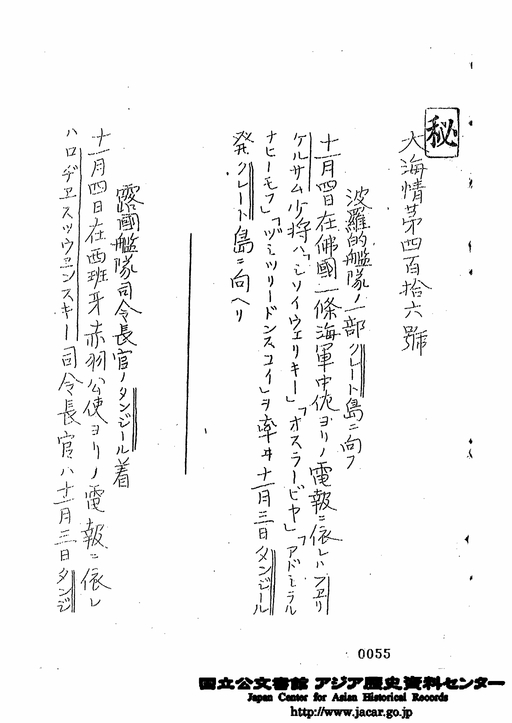 秘
大海情第四百拾六號
波羅的艦隊ノ一部クレート島ニ向フ
十一月四日在佛國一條海軍中佐ヨリノ電報ニ依レハフヱリ
ケルサム少将ハ「シソイウェリキー」「オスラービヤ」「アドミラル
ナヒーモフ」「ヅミツリードンスコイ」ヲ率ヰ十一月三日タンジール
発クレート島ニ向ヘリ
露國艦隊司令長官ノタンジール着
十一月四日在西班牙赤羽公使ヨリノ電報ニ依レ
ハロヂヱスツウヱンスキー司令長官ハ十一月三日タンジ
0055
国立公文書館 アジア歴史資料センター
Japan Center for Asian Historical Records
http://www.jacar.go.jp